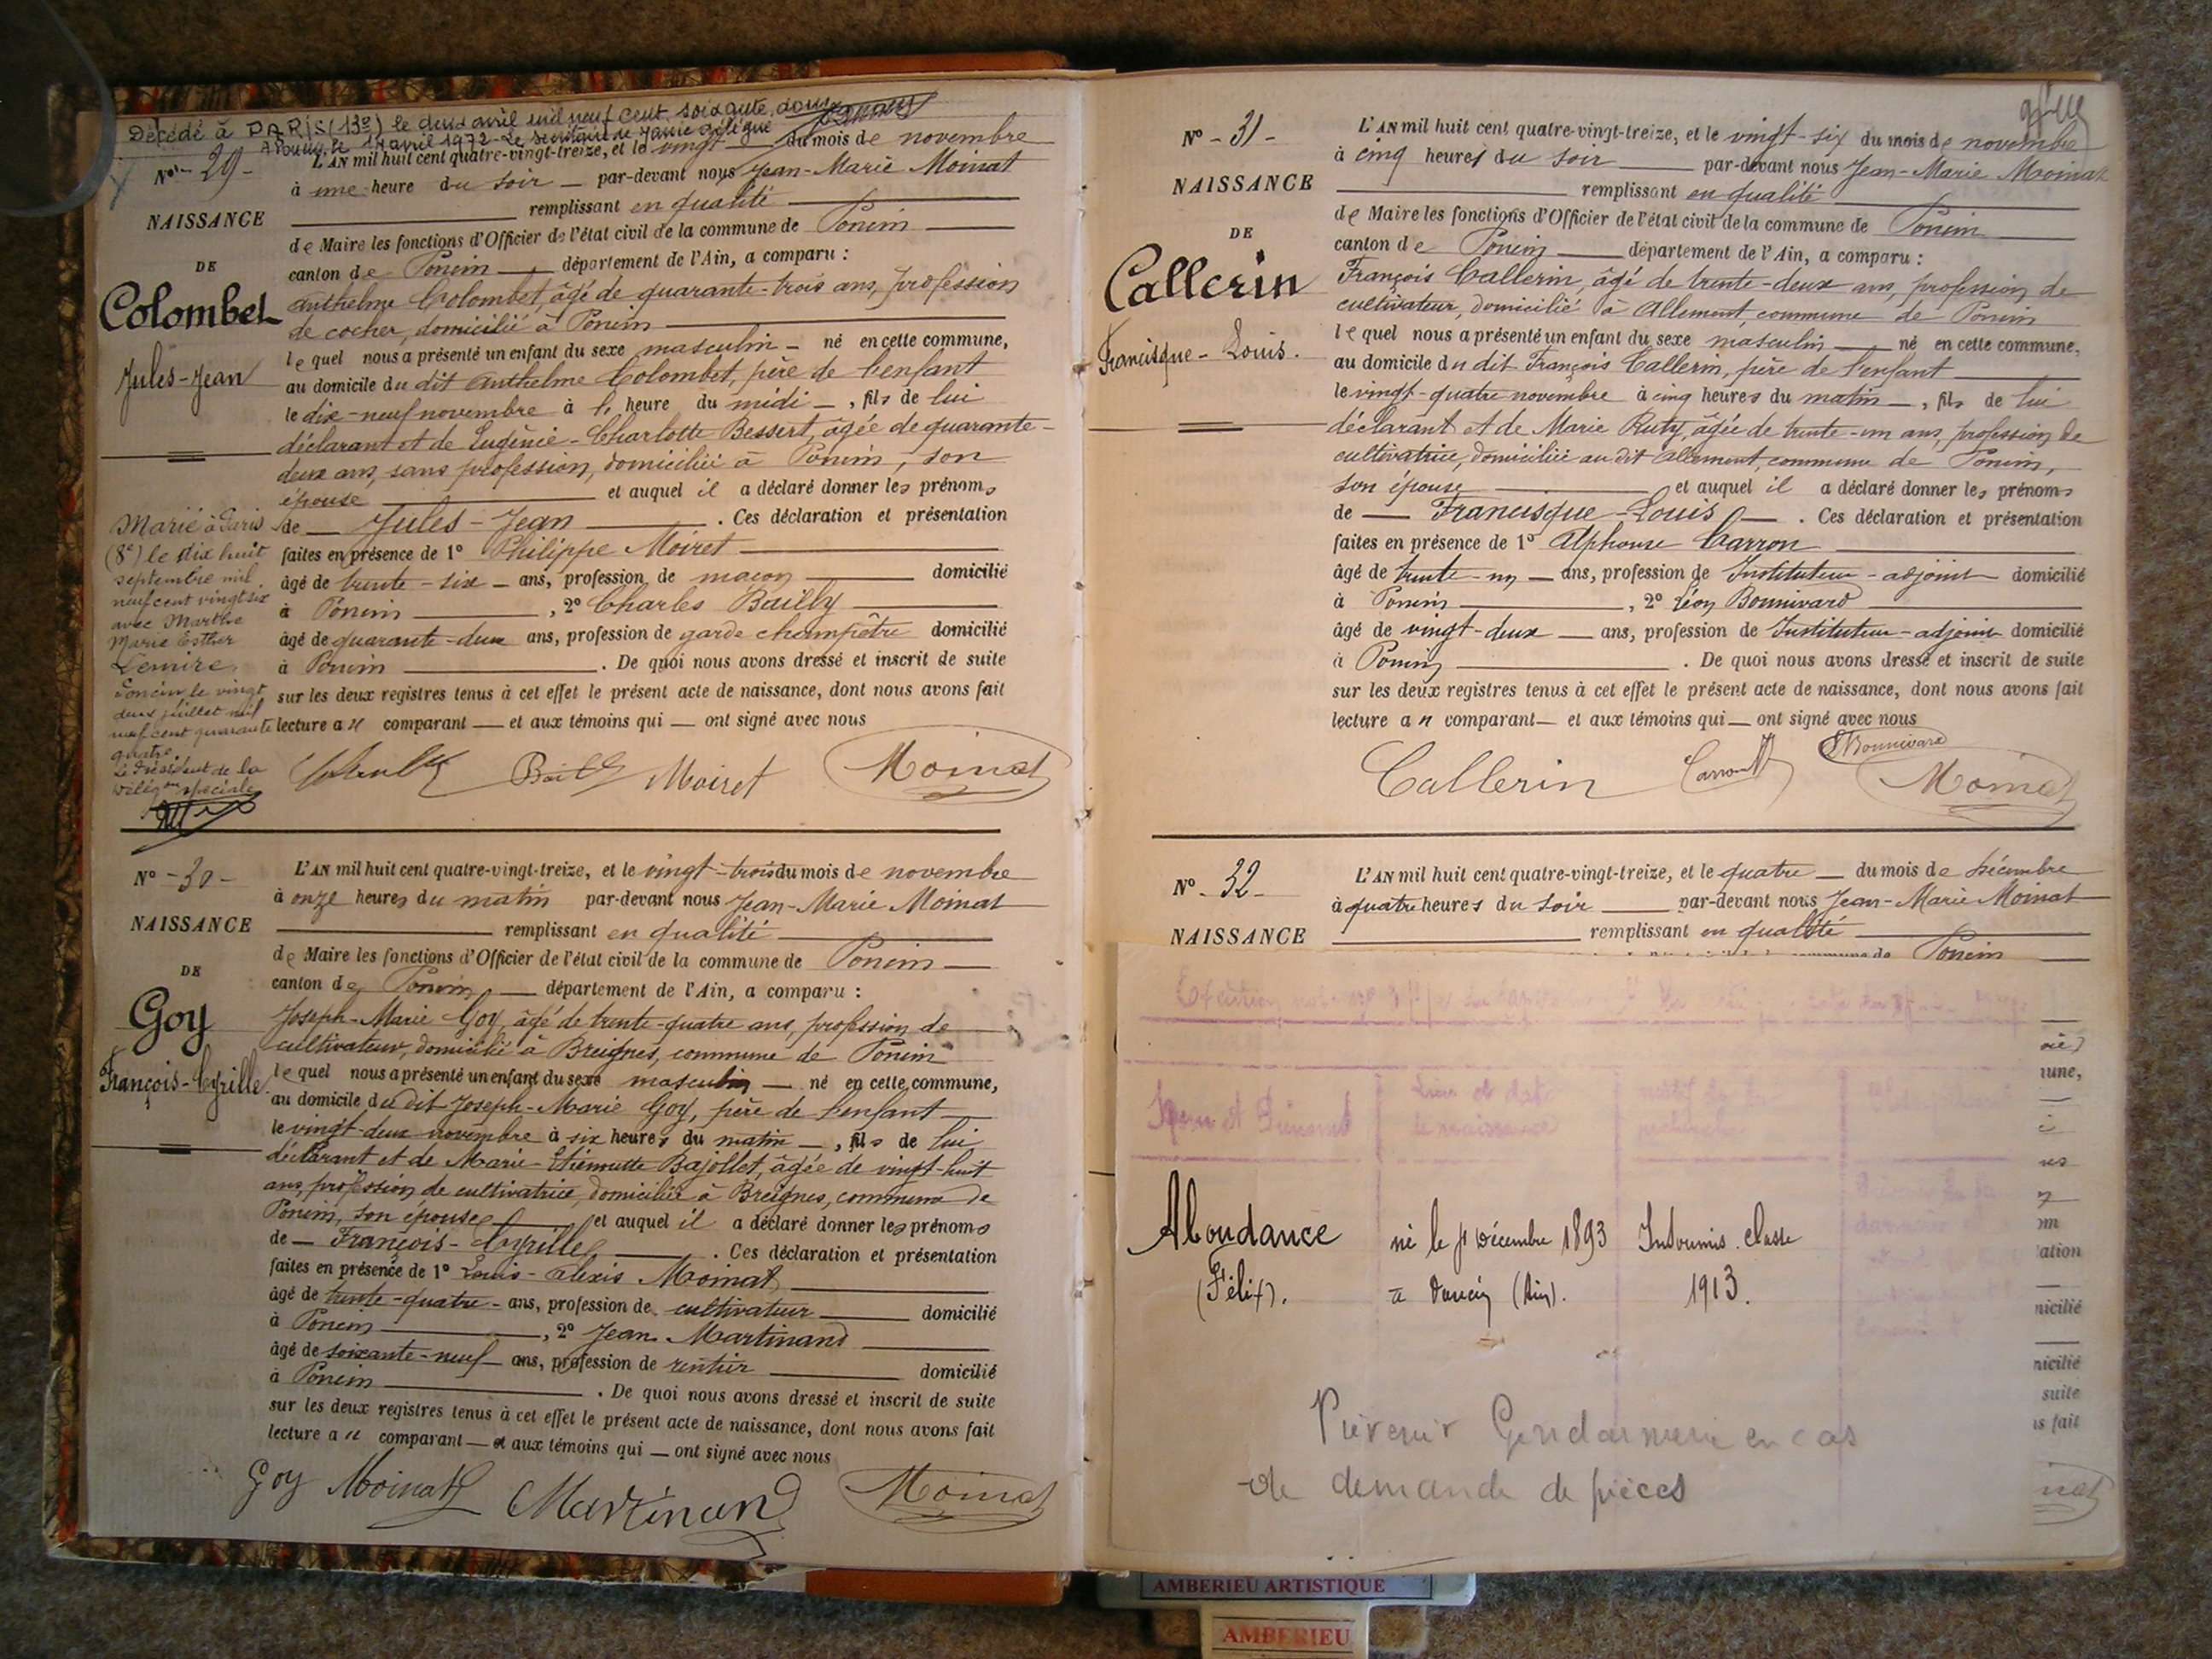 Décédé à PARIS (13e) le deux avril mil neuf cent soixante douze
A Poncin, le 14 avril 1972 - Le secrétaire de Mairie délégué
No - 29 -
L'AN mil huit cent quatre-vingt-treize, et le vingt du mois de novembre
à une heure du soir par-devant nous Jean-Marie Moinat
NAISSANCE
remplissant en qualité
de Maire les fonctions d'Officier de l'état civil de la commune de Poncin
DE
canton de Poncin département de l'Ain, a comparu :
Colombet
Anthelme Colombet, âgé de quarante-trois ans, profession
de cocher, domicilié à Poncin
lequel nous a présenté un enfant du sexe masculin né en cette commune,
Jules-Jean
au domicile du dit Anthelme Colombet, père de l'enfant
le dix-neuf novembre à heure du midi , fils de lui
déclarant et de Eugénie-Charlotte Bessert, âgée de quarante-
deux ans, sans profession, domiciliée à Poncin, son
épouse et auquel il a déclaré donner les prénoms
de Jules-Jean . Ces déclaration et présentation
faites en présence de 1o Philippe Moiret
âgé de trente-six ans, profession de maçon domicilié
à Poncin , 2o Charles Bailly
âgé de quarante-deux ans, profession de garde champêtre domicilié
à Poncin . De quoi nous avons dressé et inscrit de suite
sur les deux registres tenus à cet effet le présent acte de naissance, dont nous avons fait
lecture au comparant et aux témoins qui ont signé avec nous
Marié à Paris
(8e) le dix huit
septembre mil
neuf cent vingt six
avec Marthe
Marie Esther
Lemire
Poncin le vingt
deux juillet mil
neuf cent quarante
quatre.
Le Président de la
Délégon spéciale
Bailly Moiret Moinat
No - 30 -
L'AN mil huit cent quatre-vingt-treize, et le vingt-trois du mois de novembre
à onze heures du matin par-devant nous Jean-Marie Moinat
NAISSANCE
remplissant en qualité
de Maire les fonctions d'Officier de l'état civil de la commune de Poncin
DE
canton de Poncin département de l'Ain, a comparu :
Goy
Joseph-Marie Goy, âgé de trente-quatre ans, profession de
cultivateur, domicilié à Breignes, commune de Poncin
François-Cyrille
lequel nous a présenté un enfant du sexe masculin né en cette commune,
au domicile du dit Joseph-Marie Goy, père de l'enfant
le vingt-deux novembre à six heures du matin , fils de lui
déclarant et de Marie-Etiennette Bajollet, âgée de vingt-huit
ans, profession de cultivatrice, domiciliée à Breignes, commune de
Poncin, son épouse et auquel il a déclaré donner les prénoms
de François-Cyrille . Ces déclaration et présentation
faites en présence de 1o Louis-Alexis Moinat
âgé de trente-quatre ans, profession de cultivateur domicilié
à Poncin , 2o Jean Martinand
âgé de soixante-neuf ans, profession de rentier domicilié
à Poncin . De quoi nous avons dressé et inscrit de suite
sur les deux registres tenus à cet effet le présent acte de naissance, dont nous avons fait
lecture au comparant et aux témoins qui ont signé avec nous
Goy Moinat Martinand Moinat
No - 31 -
L'AN mil huit cent quatre-vingt-treize, et le vingt-six du mois de novembre
à cinq heures du soir par-devant nous Jean-Marie Moinat
NAISSANCE
remplissant en qualité
de Maire les fonctions d'Officier de l'état civil de la commune de Poncin
DE
canton de Poncin département de l'Ain, a comparu :
Callerin
François Callerin, âgé de trente-deux ans, profession de
cultivateur, domicilié à Allement, commune de Poncin
Francisque-Louis.
lequel nous a présenté un enfant du sexe masculin né en cette commune,
au domicile du dit François Callerin, père de l'enfant
le vingt-quatre novembre à cinq heures du matin , fils de lui
déclarant et de Marie Ruty, âgée de trente-un ans, profession de
cultivatrice, domiciliée au dit Allement, commune de Poncin,
son épouse et auquel il a déclaré donner les prénoms
de Francisque-Louis . Ces déclaration et présentation
faites en présence de 1o Alphonse Carron
âgé de trente-un ans, profession de Instituteur-adjoint domicilié
à Poncin , 2o Léon Bonnivard
âgé de vingt-deux ans, profession de Instituteur-adjoint domicilié
à Poncin . De quoi nous avons dressé et inscrit de suite
sur les deux registres tenus à cet effet le présent acte de naissance, dont nous avons fait
lecture au comparant et aux témoins qui ont signé avec nous
Callerin Carron Bonnivard Moinat
No - 32 -
L'AN mil huit cent quatre-vingt-treize, et le quatre du mois de décembre
à quatre heures du soir par-devant nous Jean-Marie Moinat
NAISSANCE
remplissant en qualité
commune de Poncin
Nom et Prénoms
Lieu et date
de naissance
une,
ation
nicilié
nicilié
suite
is fait
Aboudance né le 4 Décembre 1893 Insoumis classe
(Félix). à Poncin (Ain). 1913.
Prévenir Gendarmerie en cas
de demande de pièces
AMBERIEU ARTISTIQUE
AMBERIEU